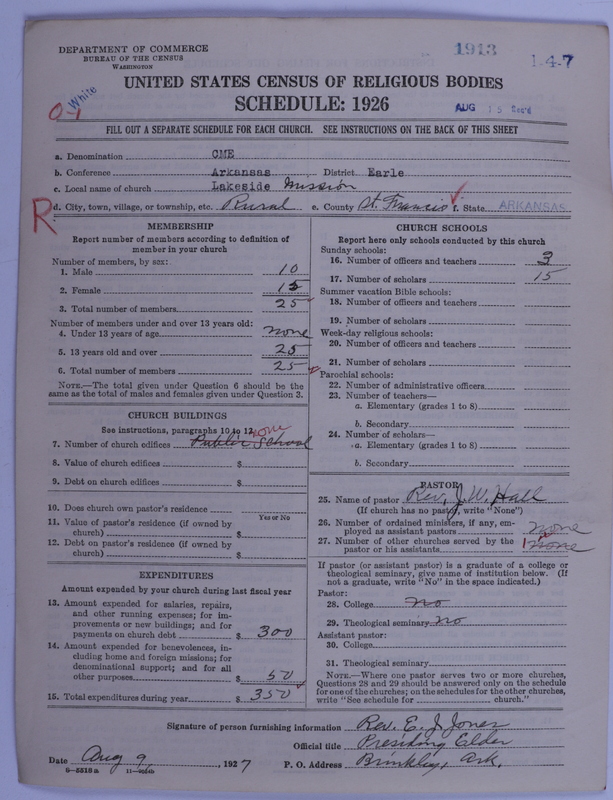 DEPARTMENT OF COMMERCE
BUREAU OF THE CENSUS
WASHINGTON
1913
1-4-7
White
UNITED STATES CENSUS OF RELIGIOUS BODIES
SCHEDULE: 1926
AUG 15 Rec'd
FILL OUT A SEPARATE SCHEDULE FOR EACH CHURCH. SEE INSTRUCTIONS ON THE BACK OF THIS SHEET
a. Denomination CME
b. Conference Arkansas District Earle
c. Local name of church Lakeside Mission
R d. City, town, village, or township, etc. Rural e. County St. Francis f. State ARKANSAS
MEMBERSHIP
Report number of members according to definition of
member in your church
Number of members, by sex:
1. Male 10
2. Female 15
3. Total number of members 25
Number of members under and over 13 years old:
4. Under 13 years of age none
5. 13 years old and over 25
6. Total number of members 25
NOTE.—The total given under Question 6 should be the
same as the total of males and females given under Question 3.
CHURCH BUILDINGS
See instructions, paragraphs 10 to 12
none
7. Number of church edifices Public School
8. Value of church edifices $
9. Debt on church edifices $
10. Does church own pastor's residence
Yes or No
11. Value of pastor's residence (if owned by
church) $
12. Debt on pastor's residence (if owned by
church) $
EXPENDITURES
Amount expended by your church during last fiscal year
13. Amount expended for salaries, repairs,
and other running expenses; for im-
provements or new buildings; and for
payments on church debt $ 300
14. Amount expended for benevolences, in-
cluding home and foreign missions; for
denominational support; and for all
other purposes $ 50
15. Total expenditures during year $ 350
CHURCH SCHOOLS
Report here only schools conducted by this church
Sunday schools:
16. Number of officers and teachers 3
17. Number of scholars 15
Summer vacation Bible schools:
18. Number of officers and teachers
19. Number of scholars
Week-day religious schools:
20. Number of officers and teachers
21. Number of scholars
Parochial schools:
22. Number of administrative officers
23. Number of teachers—
a. Elementary (grades 1 to 8)
b. Secondary
24. Number of scholars—
a. Elementary (grades 1 to 8)
b. Secondary
PASTOR
25. Name of pastor Rev. J. W. Hall
(If church has no pastor, write "None")
26. Number of ordained ministers, if any, em-
ployed as assistant pastors none
27. Number of other churches served by the
pastor or his assistants 1 none
If pastor (or assistant pastor) is a graduate of a college or
theological seminary, give name of institution below. (If
not a graduate, write "No" in the space indicated.)
Pastor:
28. College no
29. Theological seminary no
Assistant pastor:
30. College
31. Theological seminary
NOTE.—Where one pastor serves two or more churches,
Questions 28 and 29 should be answered only on the schedule
for one of the churches; on the schedules for the other churches,
write "See schedule for church."
Signature of person furnishing information Rev. E. J. Jones
Official title Presiding Elder
Date Aug 9, 1927 P. O. Address Brinkley, Ark.